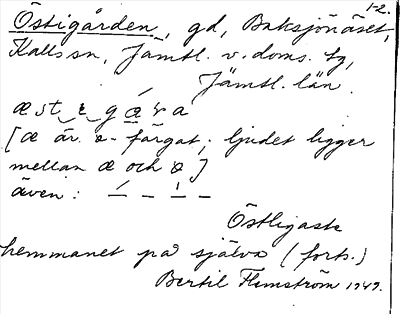 1-2.
Östigården, gd, Baksjönäset,
Kalls sn, Jämtl. v. doms. tg,
Jämtl. län.
[æ är ə-färgat; ljudet ligger
mellan æ och ə]
även:
Östligaste
hemmanet på själva (forts.)
Bertil Flemström 1949.